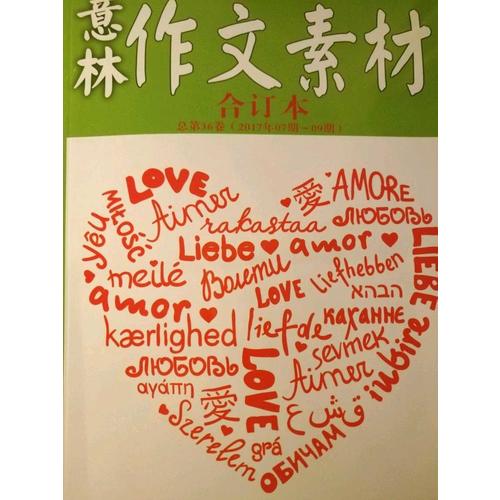 意林
作文素材
合订本
总第36卷（2017年07期-09期）
LOVE
愛
AMORE
yêu
MIŁOŚĆ
Aimer
rakastaa
ЛЮБОВЬ
Liebe
amor
LIEBE
meilé
Волети
LOVE
liefhebben
amor
הבהא
kærlighed
liefde
каханне
iubire
ЛЮБОВЬ
LOVE
sevmek
αγάπη
愛
Aimer
ع ش ق
Szerelem
grá
ОБИЧАМ